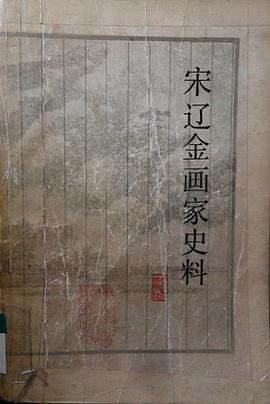 宋辽金画家史料